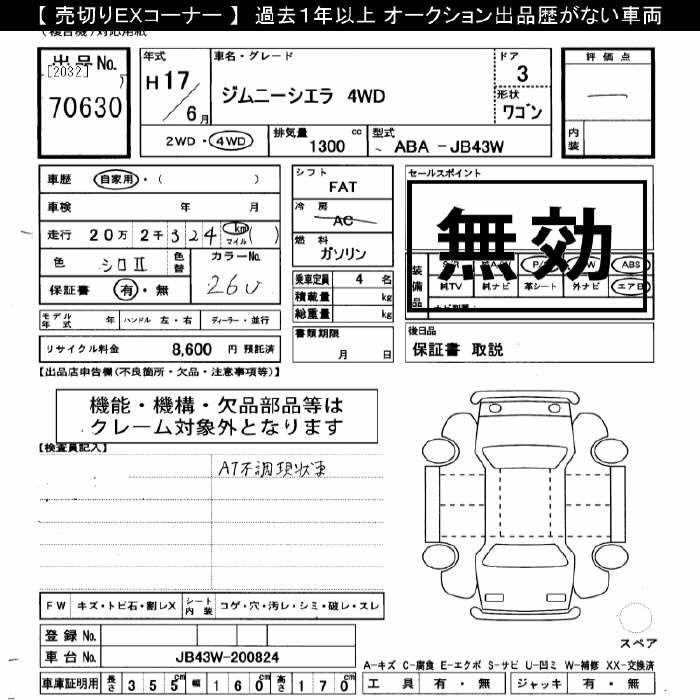 【 売切りEXコーナー 】 過去１年以上 オークション出品歴がない車両
出品No.
[2032]
70630
年式
H 17 / 6 月
車名・グレード
ジムニーシエラ 4WD
ドア
3
形状
ワゴン
評価点
―
内装
2WD ・ 4WD
排気量
1300 cc
型式
ABA - JB43W
車歴 自家用 ・ ( )
車検 年 月
走行 20万 2千 3 2 4 km マイル ( )
色 シロⅡ 色替 カラーNo. 26U
保証書 有 ・ 無
シフト
FAT
冷房
AC
燃料
ガソリン
乗車定員 4 名
積載量 kg
総重量 kg
セールスポイント
無効
装備品
ABS
純TV 純ナビ 革シート 外ナビ エアB
モデル年式 年 ハンドル 左・右 ディーラー・並行
リサイクル料金 8,600 円 預託済
書類期限
月 日
後日品
保証書 取説
【出品店申告欄(不良箇所・欠品・注意事項等)】
機能・機構・欠品部品等は
クレーム対象外となります
【検査員記入】
AT不調現状車
FW キズ・トビ石・割レX シート内装 コゲ・穴・汚レ・シミ・破レ・スレ
登録 No.
車台 No. JB43W-200824
車庫証明用 長さ 355cm 幅 160cm 高さ 170cm
スペア
A-キズ C-腐食 E-エクボ S-サビ U-凹ミ W-補修 XX-交換済
工具 有 ・ 無 ジャッキ 有 ・ 無